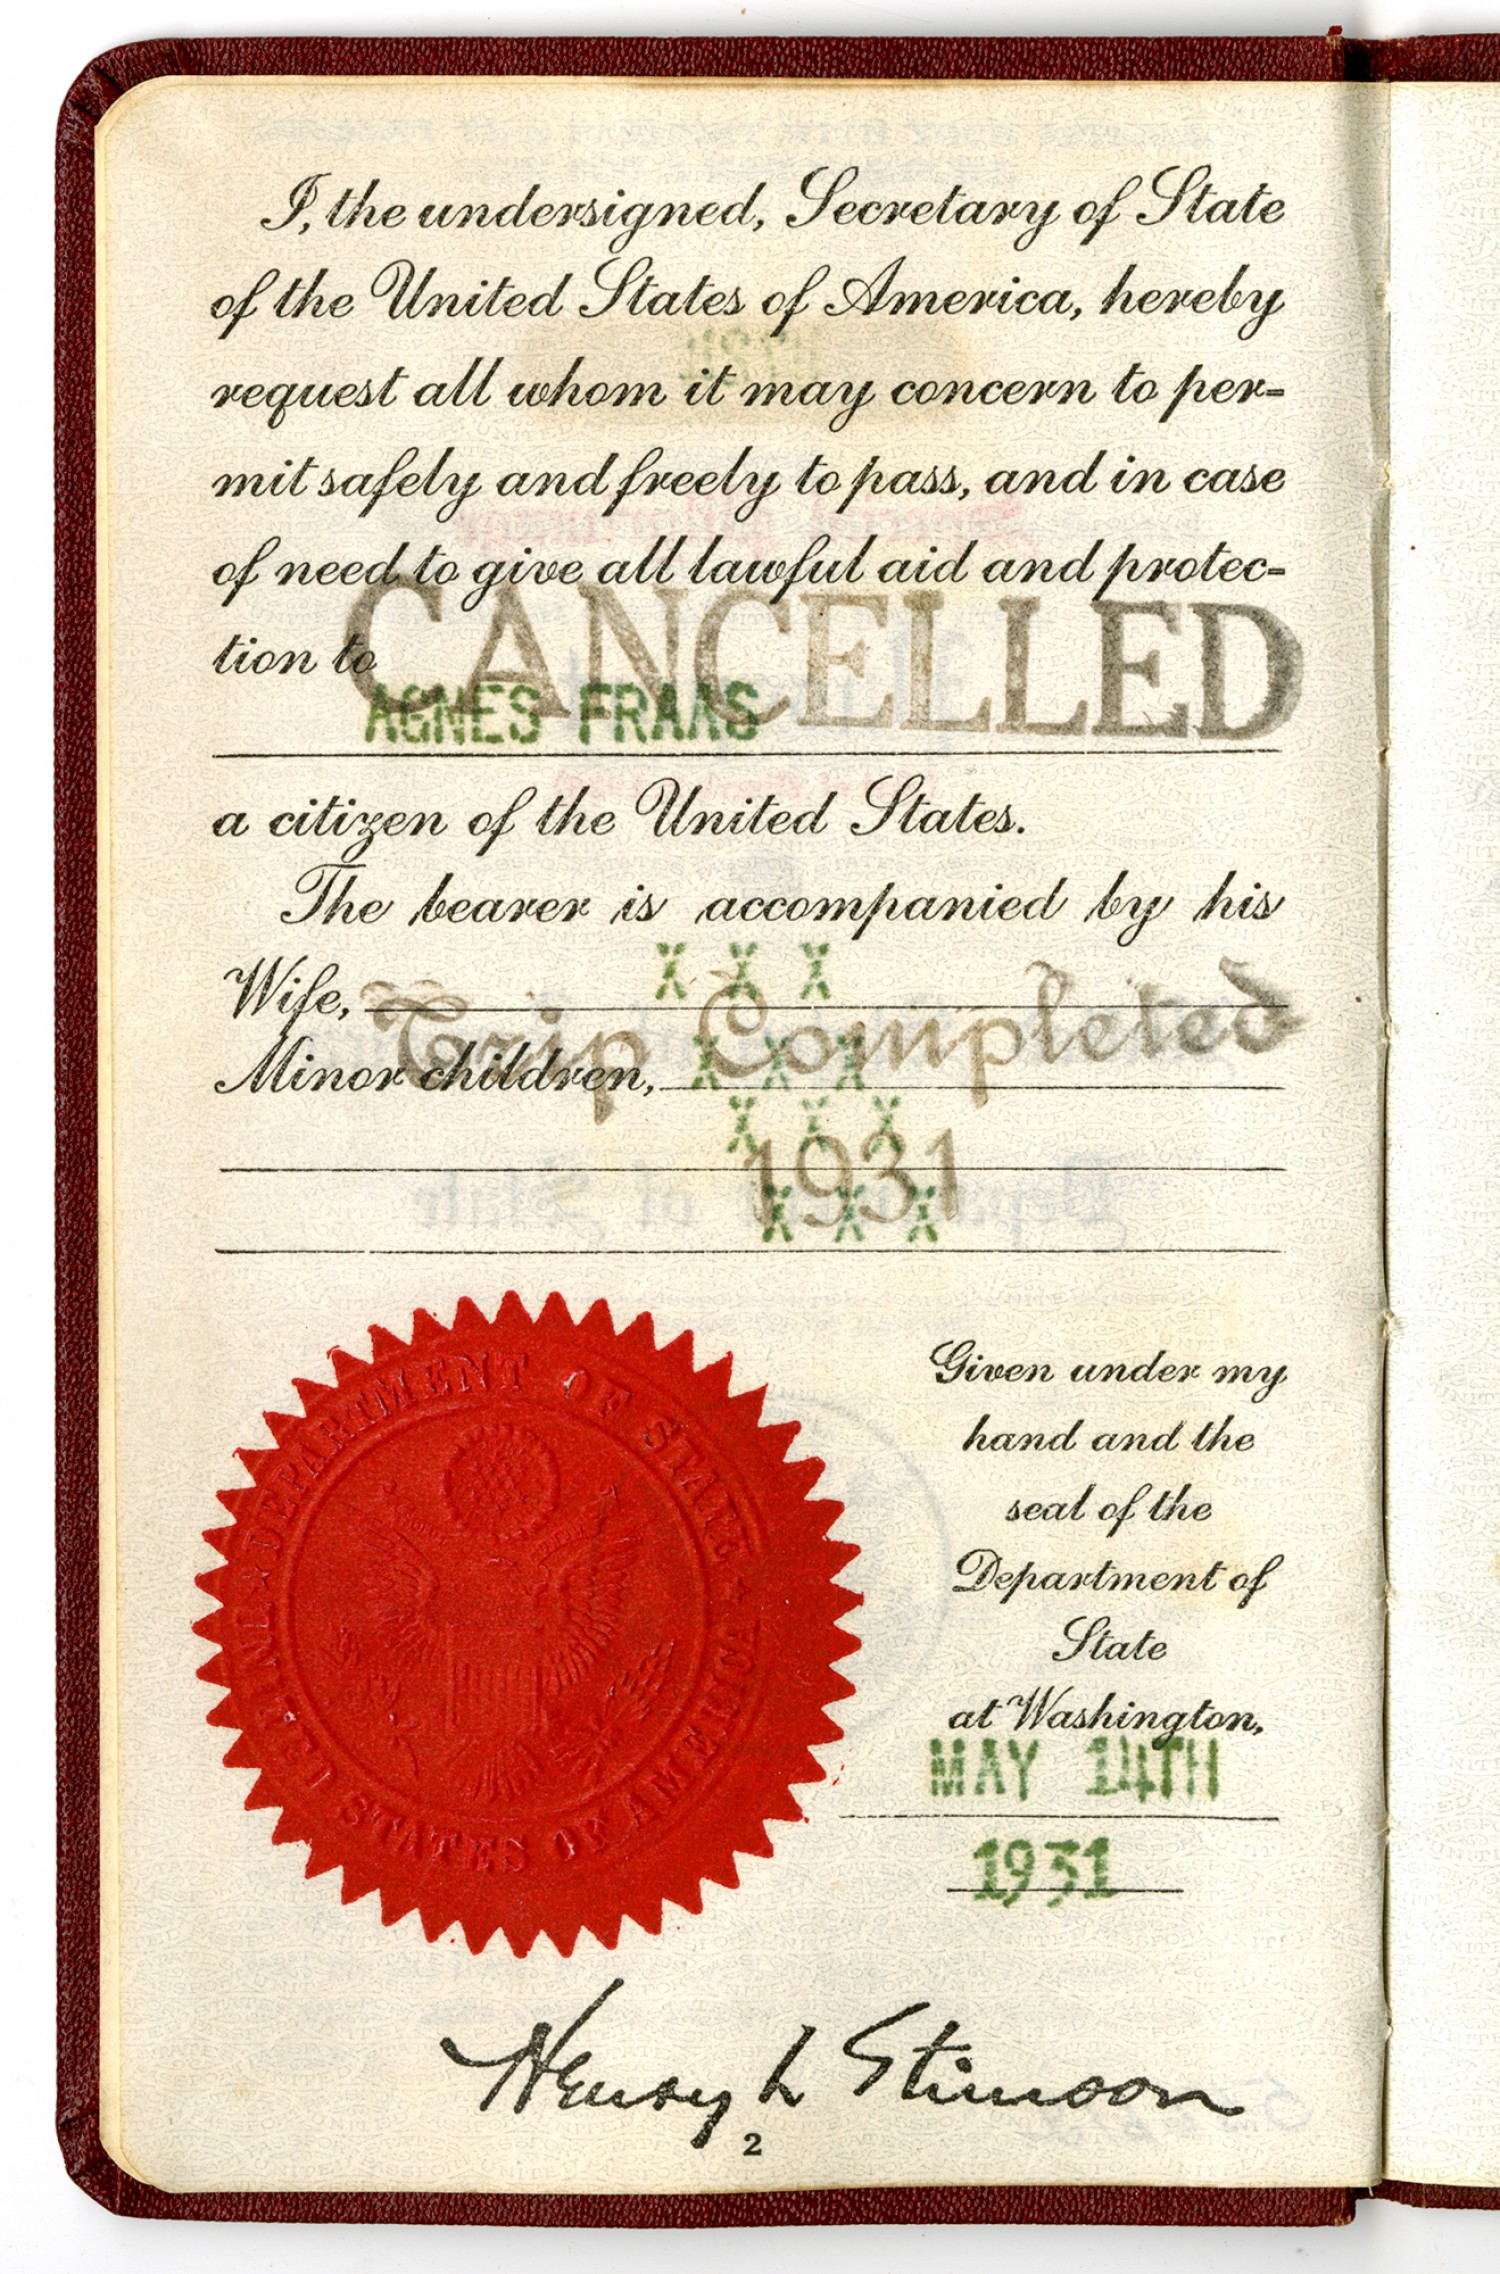 I, the undersigned, Secretary of State
of the United States of America, hereby
request all whom it may concern to per-
mit safely and freely to pass, and in case
of need to give all lawful aid and protec-
tion to
CANCELLED
AGNES FRAAS
a citizen of the United States.
The bearer is accompanied by his
X X X
Wife,
Trip Completed
Minor children, X X X
X X X
1931
X X X
DEPARTMENT OF STATE
UNITED STATES OF AMERICA
Given under my
hand and the
seal of the
Department of
State
at Washington,
MAY 14TH
1931
Henry L Stimson
2